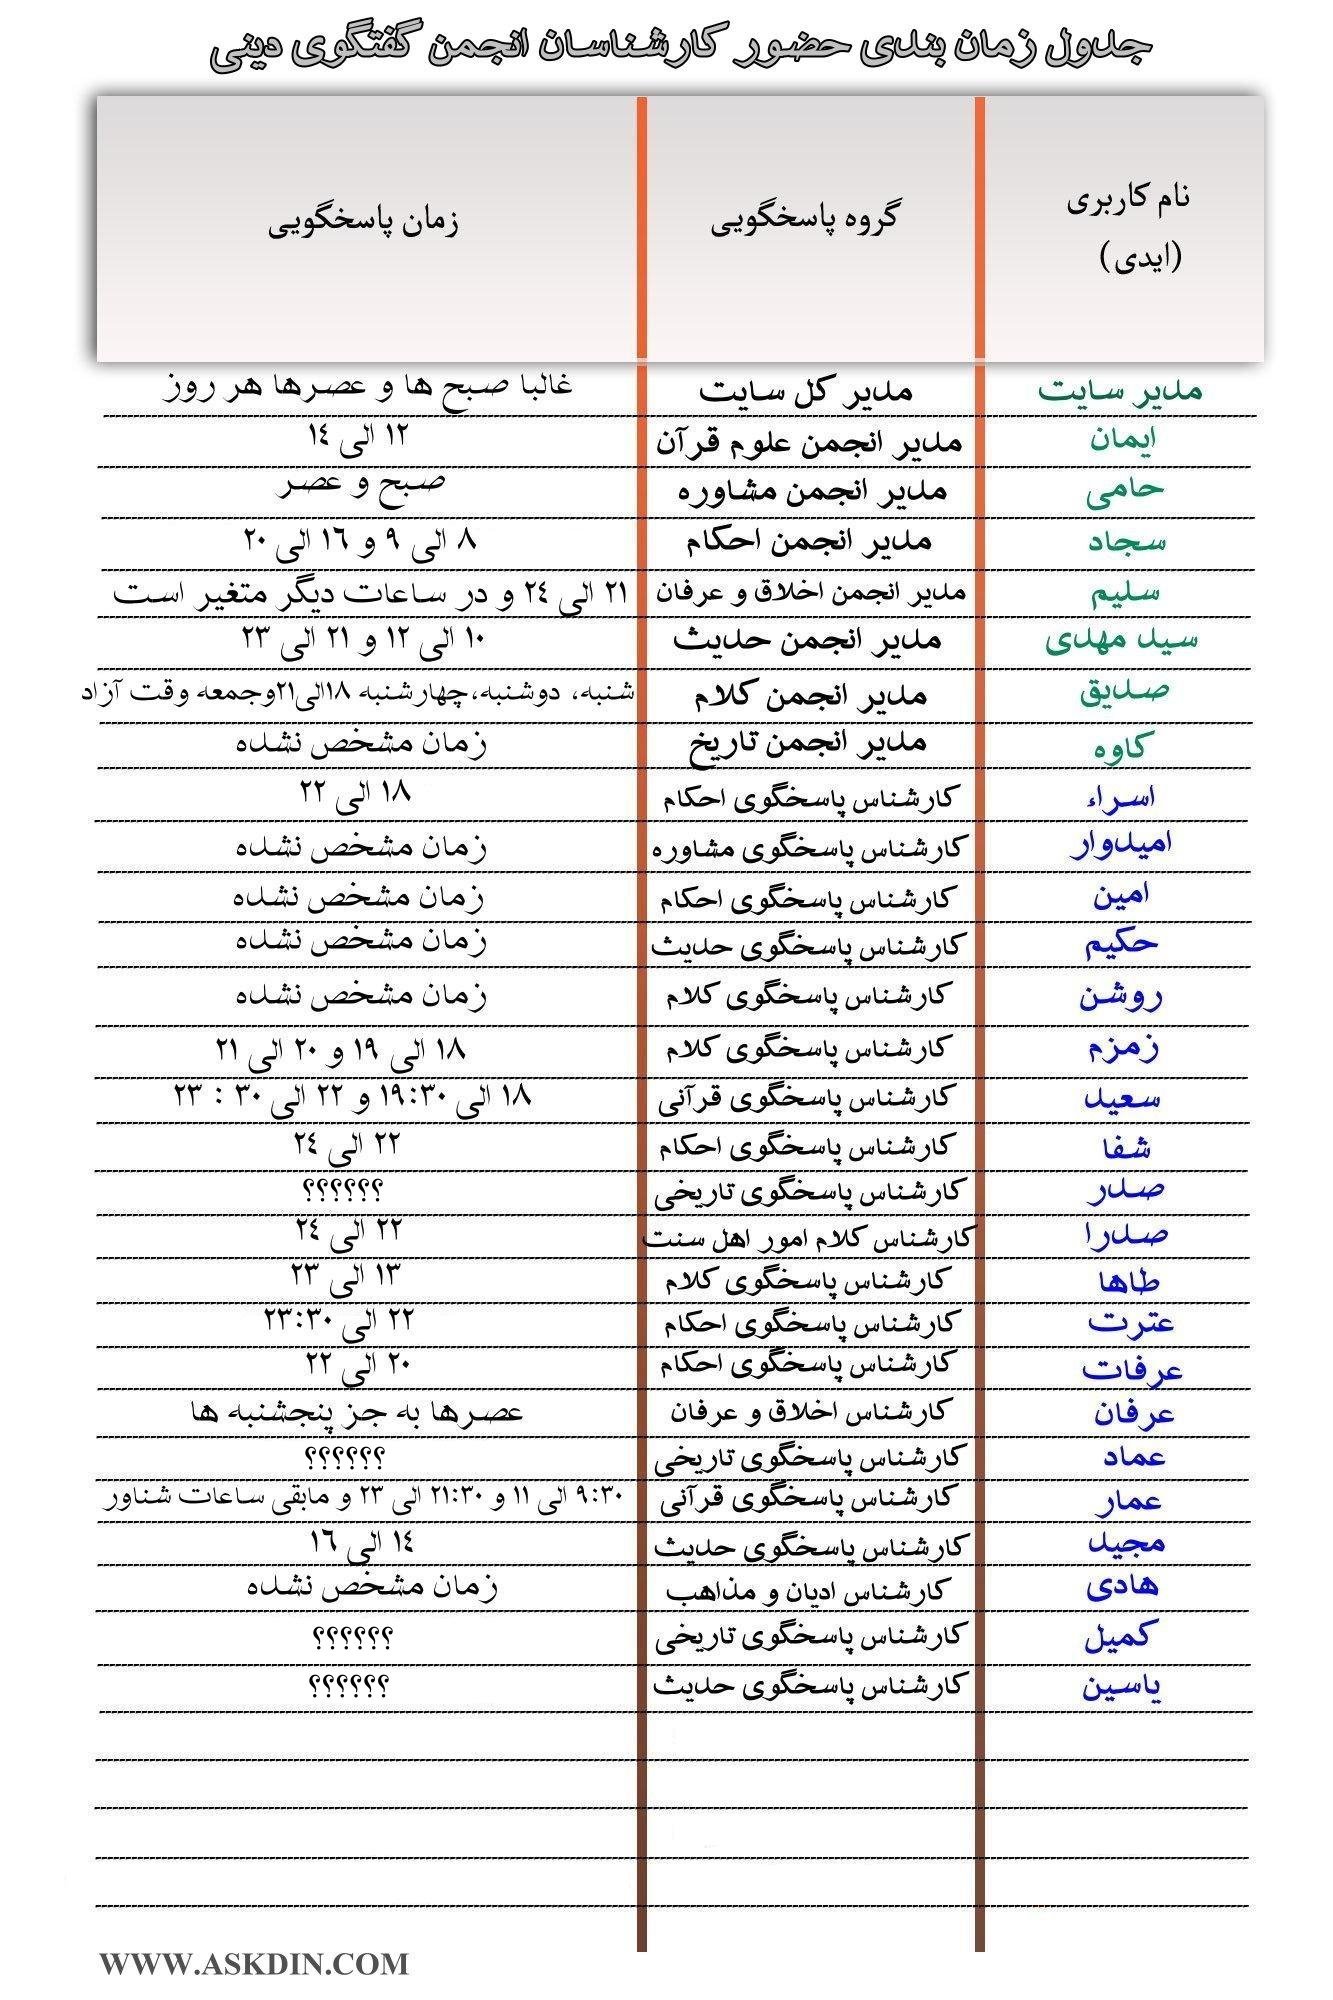 جدول زمان بندی حضور کارشناسان انجمن گفتگوی دینی
نام کاربری (ایدی) گروه پاسخگویی زمان پاسخگویی
مدیر سایت مدیر کل سایت غالبا صبح ها و عصرها هر روز
ایمان مدیر انجمن علوم قرآن ۱۲ الی ۱۴
حامی مدیر انجمن مشاوره صبح و عصر
سجاد مدیر انجمن احکام ۸ الی ۹ و ۱۶ الی ۲۰
سلیم مدیر انجمن اخلاق و عرفان ۲۱ الی ۲۴ و در ساعات دیگر متغیر است
سید مهدی مدیر انجمن حدیث ۱۰ الی ۱۲ و ۲۱ الی ۲۳
صدیق مدیر انجمن کلام شنبه، دوشنبه،چهارشنبه ۱۸الی۲۱وجمعه وقت آزاد
کاوه مدیر انجمن تاریخ زمان مشخص نشده
اسراء کارشناس پاسخگوی احکام ۱۸ الی ۲۲
امیدوار کارشناس پاسخگوی مشاوره زمان مشخص نشده
امین کارشناس پاسخگوی احکام زمان مشخص نشده
حکیم کارشناس پاسخگوی حدیث زمان مشخص نشده
روشن کارشناس پاسخگوی کلام زمان مشخص نشده
زمزم کارشناس پاسخگوی کلام ۱۸ الی ۱۹ و ۲۰ الی ۲۱
سعید کارشناس پاسخگوی قرآنی ۱۸ الی ۱۹:۳۰ و ۲۲ الی ۳۰ : ۲۳
شفا کارشناس پاسخگوی احکام ۲۲ الی ۲۴
صدر کارشناس پاسخگوی تاریخی ؟؟؟؟؟؟
صدرا کارشناس کلام امور اهل سنت ۲۲ الی ۲۴
طاها کارشناس پاسخگوی کلام ۱۳ الی ۲۳
عترت کارشناس پاسخگوی احکام ۲۲ الی ۲۳:۳۰
عرفات کارشناس پاسخگوی احکام ۲۰ الی ۲۲
عرفان کارشناس اخلاق و عرفان عصرها به جز پنجشنبه ها
عماد کارشناس پاسخگوی تاریخی ؟؟؟؟؟؟
عمار کارشناس پاسخگوی قرآنی ۹:۳۰ الی ۱۱ و ۲۱:۳۰ الی ۲۳ و مابقی ساعات شناور
مجید کارشناس پاسخگوی حدیث ۱۴ الی ۱۶
هادی کارشناس ادیان و مذاهب زمان مشخص نشده
کمیل کارشناس پاسخگوی تاریخی ؟؟؟؟؟؟
یاسین کارشناس پاسخگوی حدیث ؟؟؟؟؟؟
WWW.ASKDIN.COM